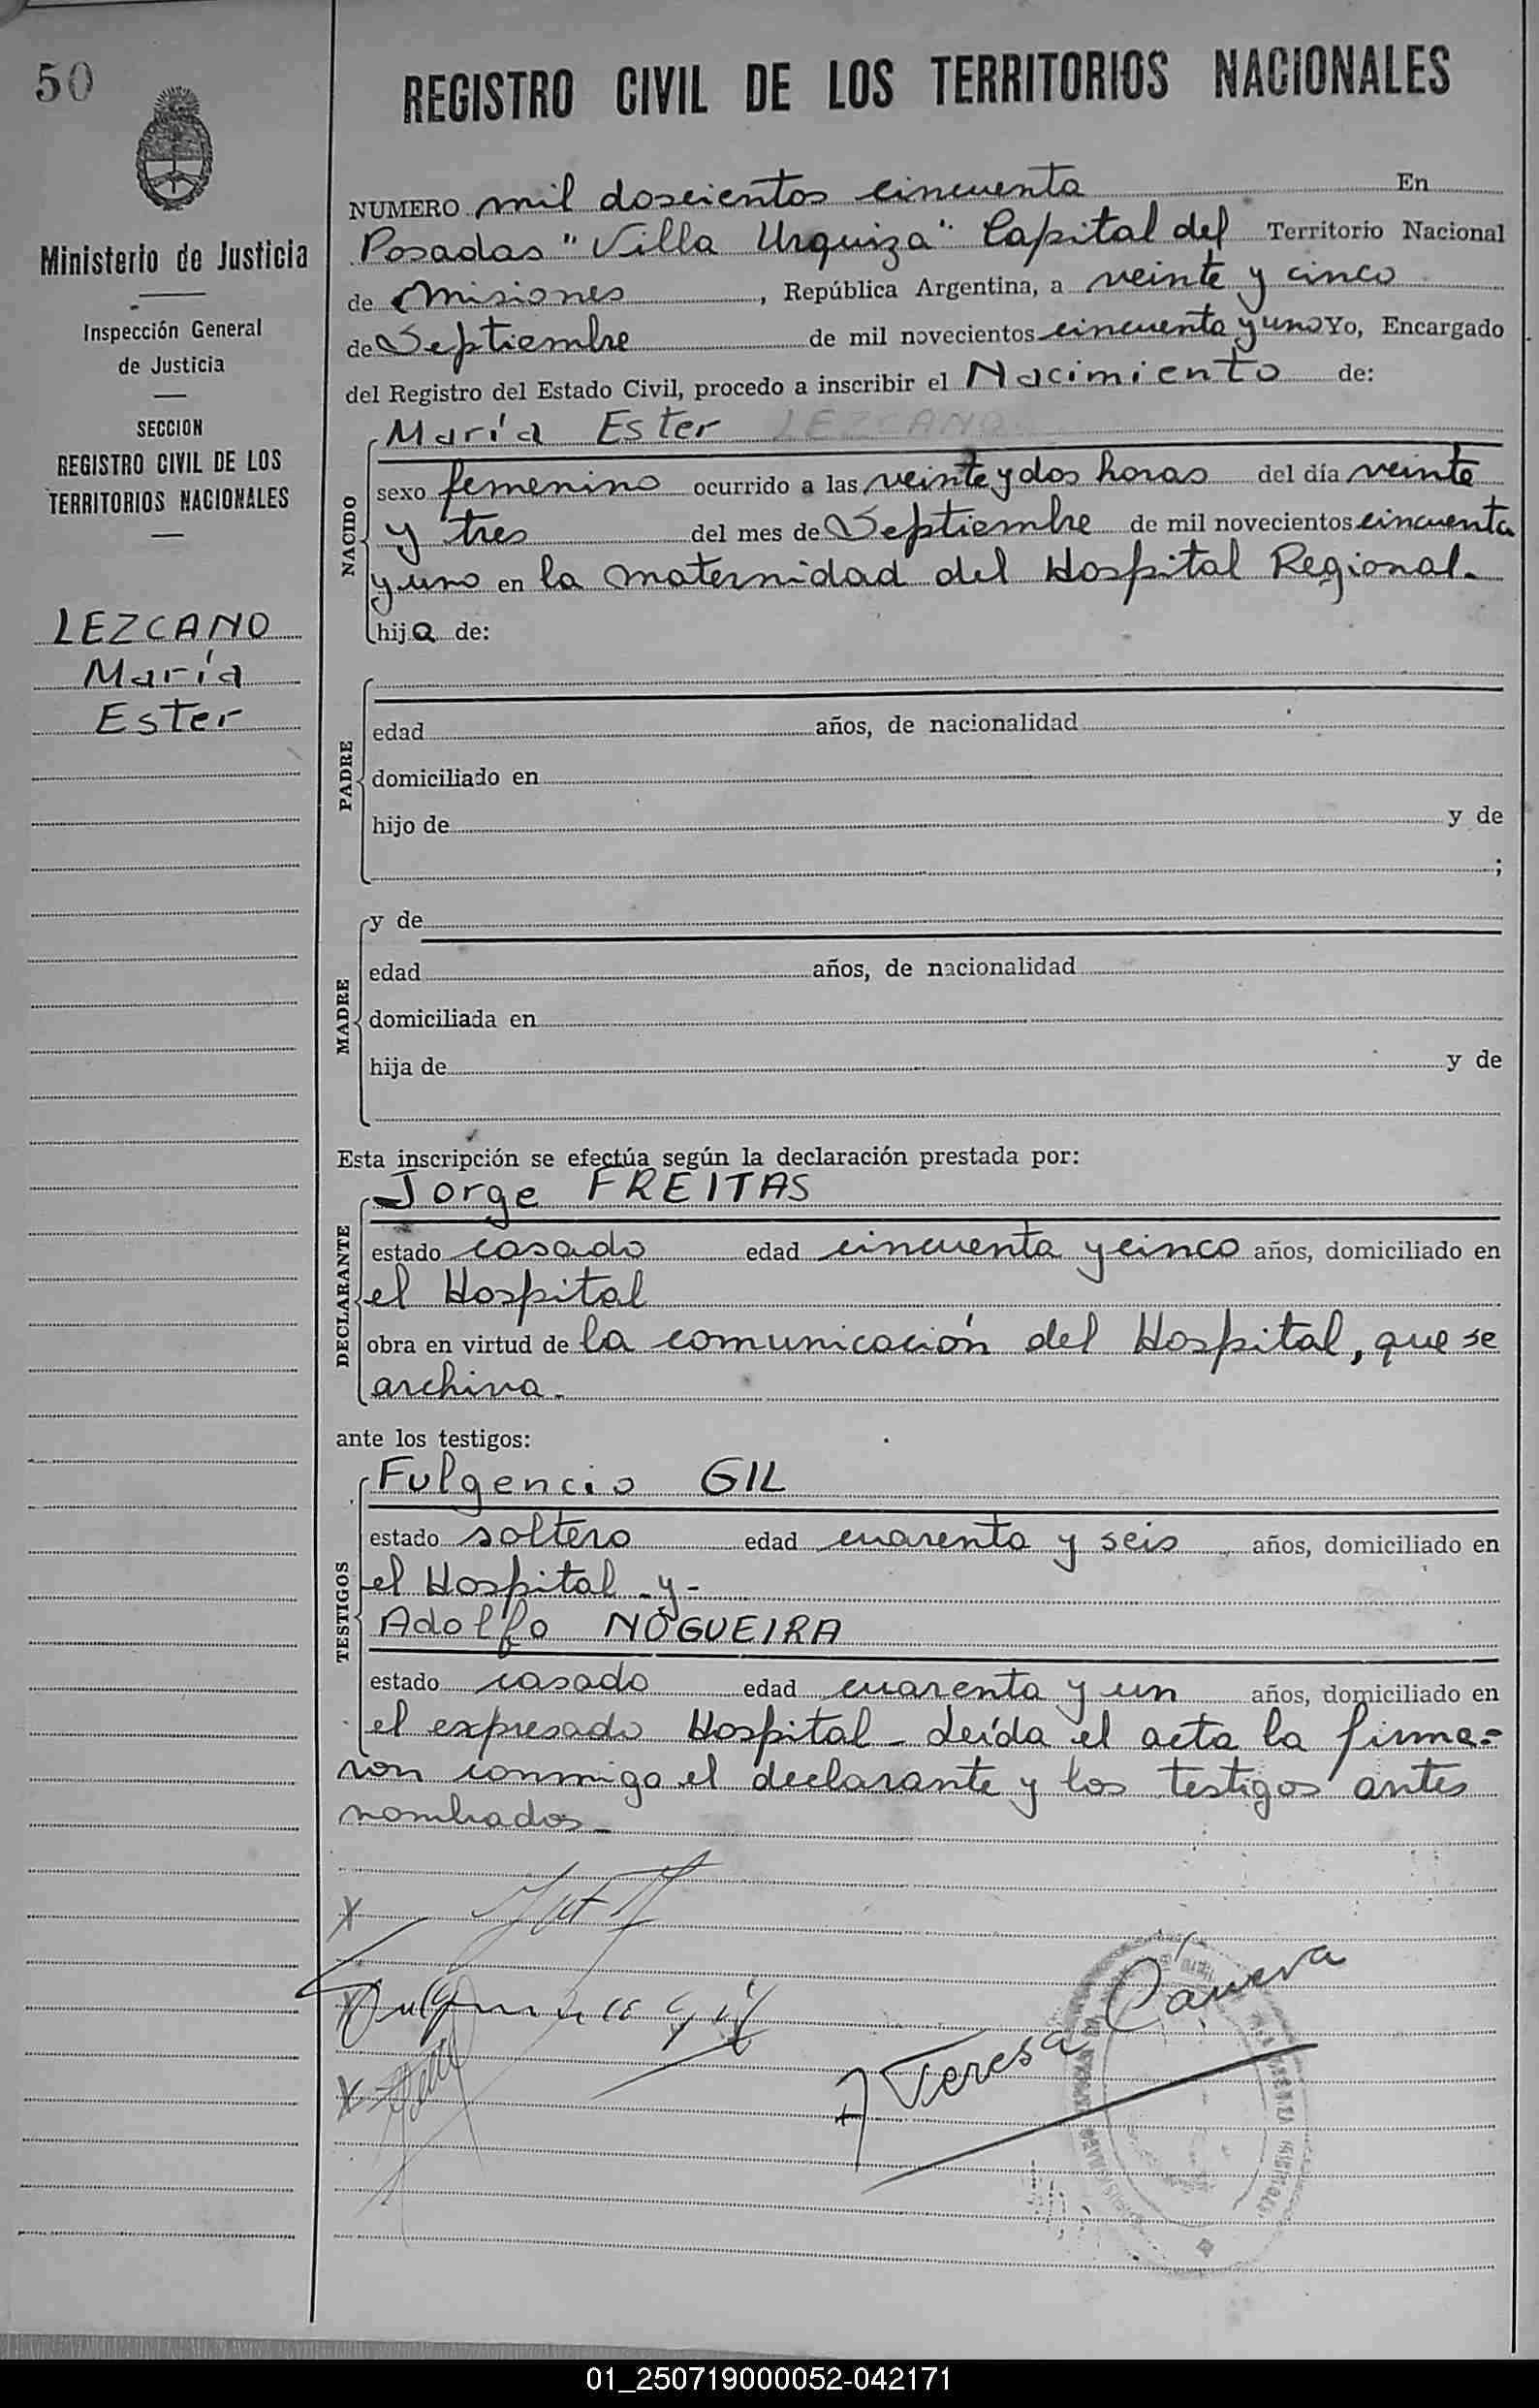 50
Ministerio de Justicia
Inspección General
de Justicia
SECCION
REGISTRO CIVIL DE LOS
TERRITORIOS NACIONALES
LEZCANO
María
Ester
REGISTRO CIVIL DE LOS TERRITORIOS NACIONALES
NUMERO mil doscientos cincuenta En
Posadas "Villa Urquiza" Capital del Territorio Nacional
de Misiones, República Argentina, a veinte y cinco
de Septiembre de mil novecientos cincuenta y uno Yo, Encargado
del Registro del Estado Civil, procedo a inscribir el Nacimiento de:
NACIDO
María Ester LEZCANO
sexo femenino ocurrido a las veinte y dos horas del día veinte
y tres del mes de Septiembre de mil novecientos cincuenta
y uno en la maternidad del Hospital Regional.
hija de:
PADRE
edad años, de nacionalidad
domiciliado en
hijo de y de
;
MADRE
y de
edad años, de nacionalidad
domiciliada en
hija de y de
Esta inscripción se efectúa según la declaración prestada por:
DECLARANTE
Jorge FREITAS
estado casado edad cincuenta y cinco años, domiciliado en
el Hospital
obra en virtud de la comunicación del Hospital, que se
archiva.
ante los testigos:
TESTIGOS
Fulgencio GIL
estado soltero edad cuarenta y seis años, domiciliado en
el Hospital - y -
Adolfo NOGUEIRA
estado casado edad cuarenta y un años, domiciliado en
el expresado Hospital - Leída el acta la firma=
ron conmigo el declarante y los testigos antes
nombrados -
X
Teresa Cáneva
X
01_250719000052-042171